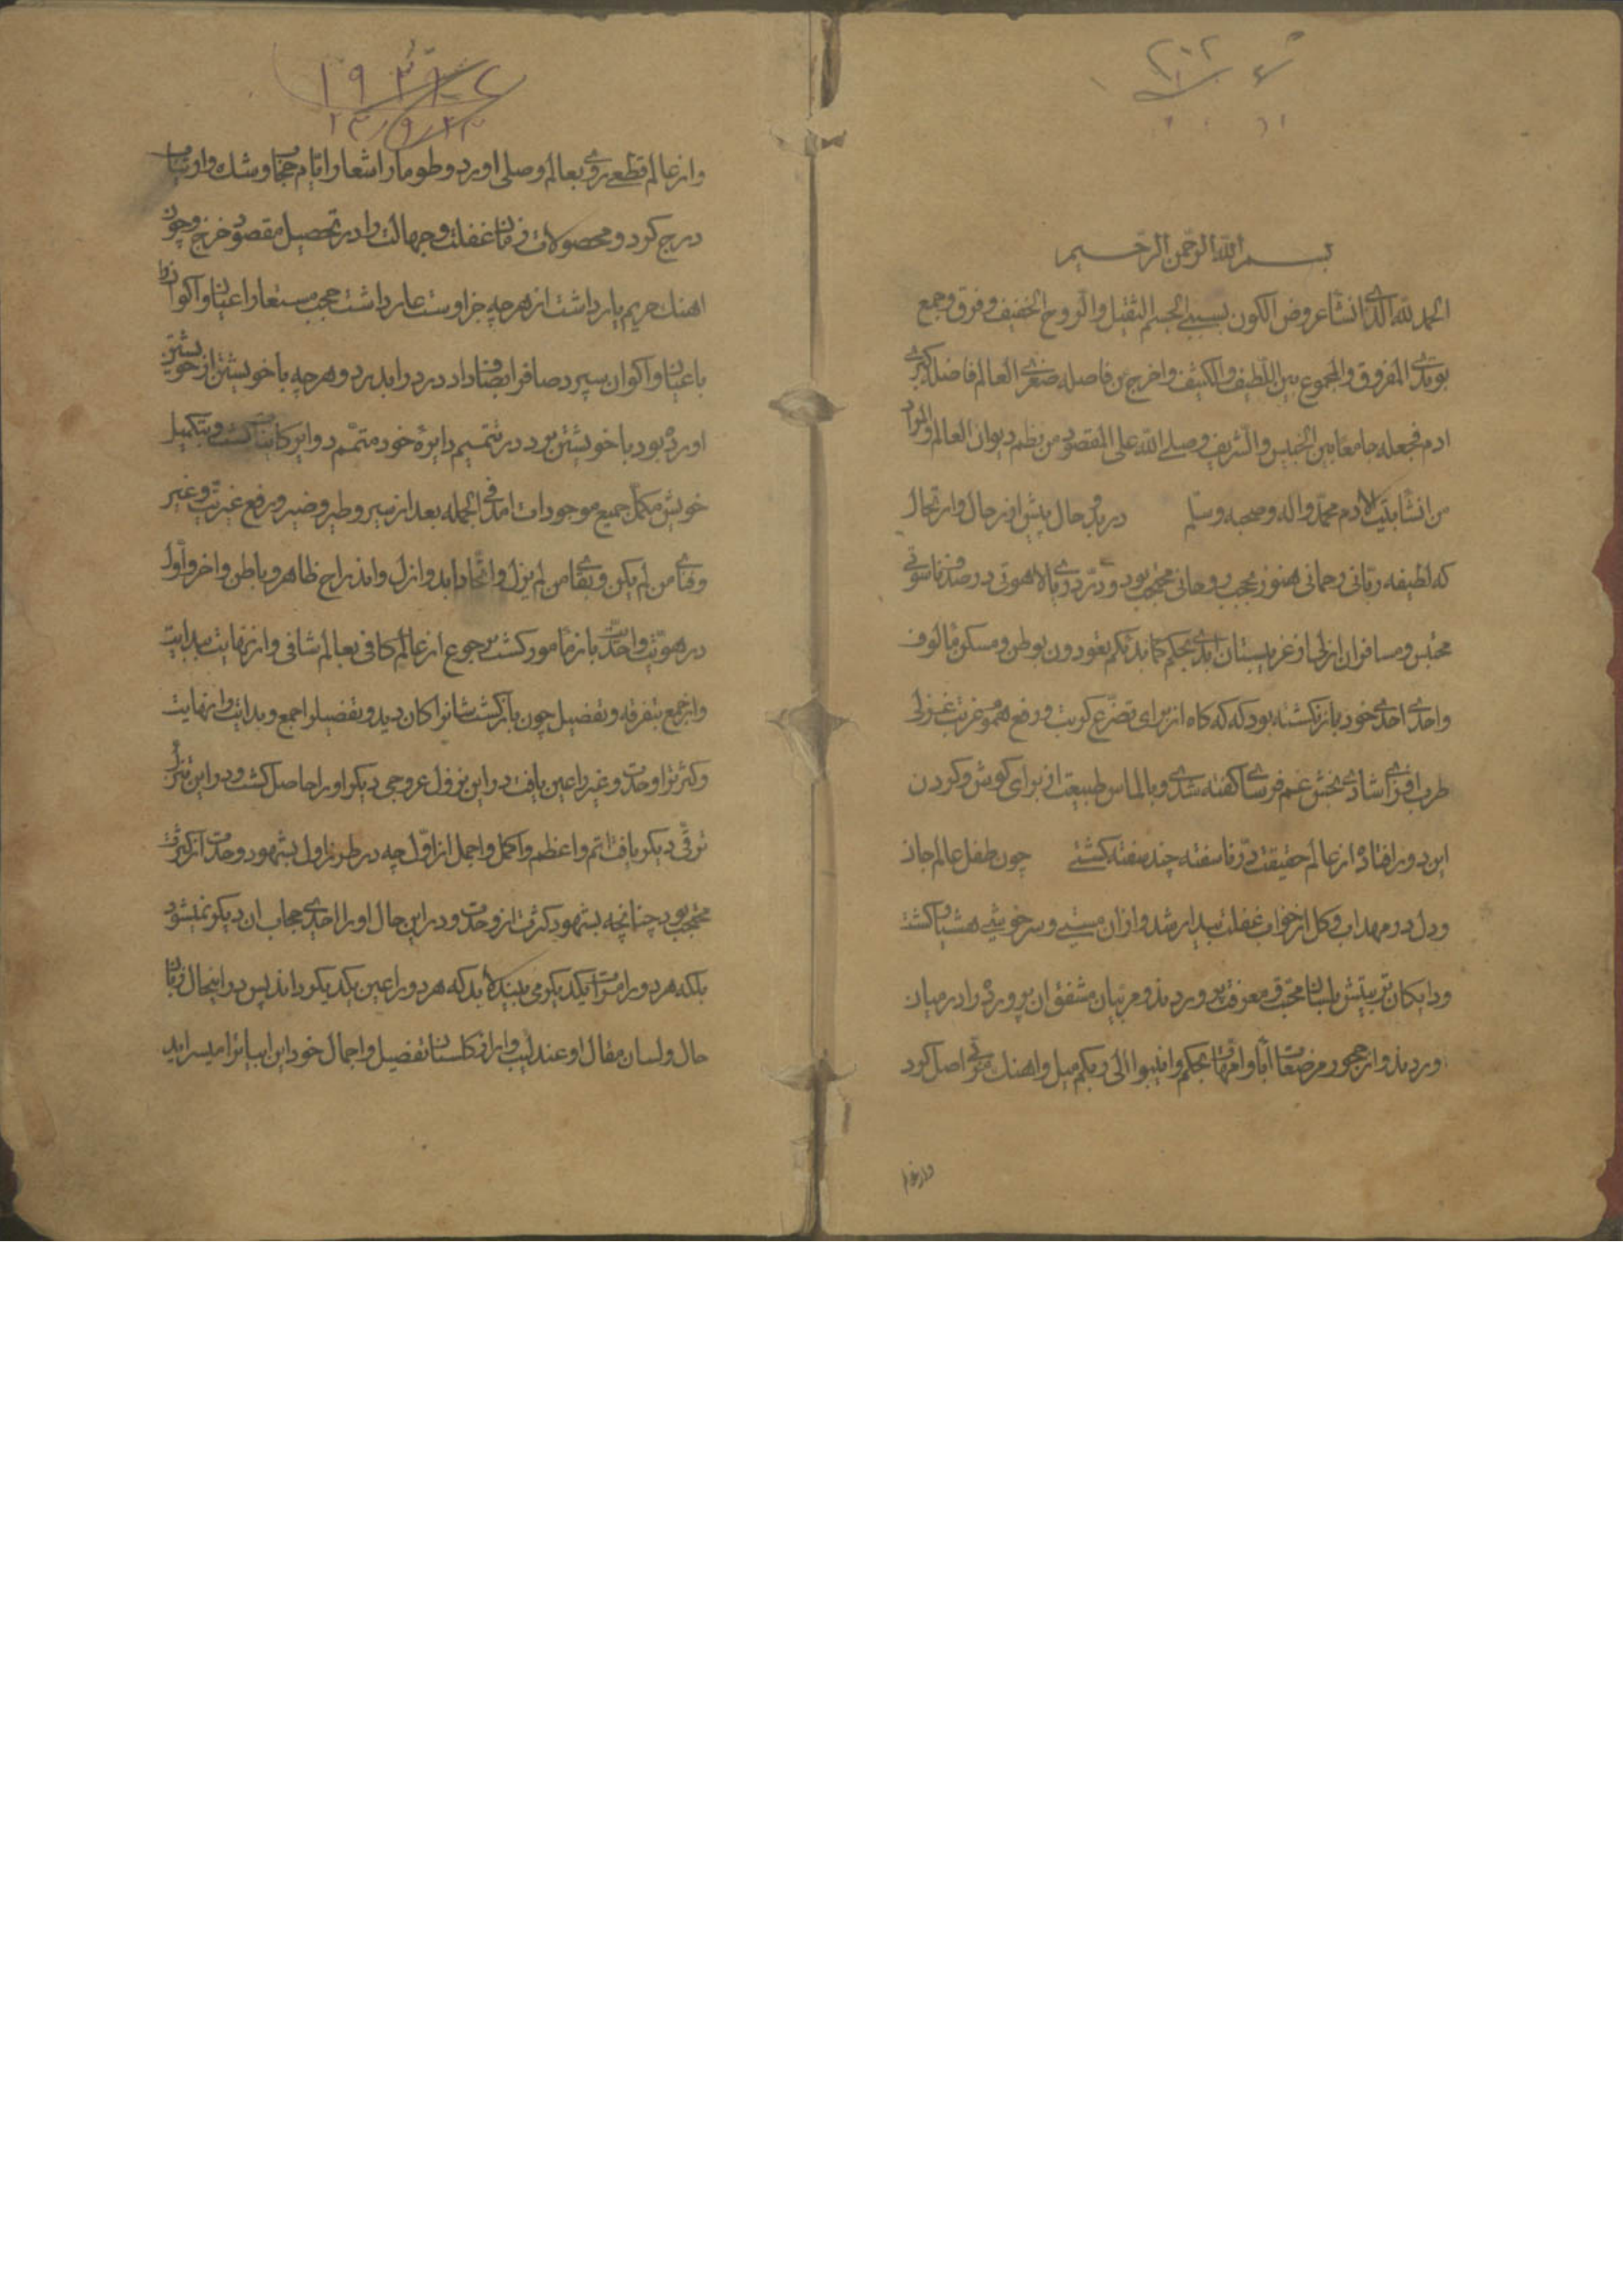 بسم الله الرحمن الرحيم
الحمد لله الذی انشأ عروض الکون بسببی الجسم الثقیل والروح الخفیف وفرق وجمع
بوتدی المفروق والمجموع بین اللطیف والکثیف واخرج من فاصله صغری العالم فاصلة کبری
ادم فجعله جامعا بین الخسیس والشریف وصلی الله علی المقصود من نظم دیوان العالم والمراد
من انشا بیت ادم محمد واله وصحبه وسلم در بدو حال پیش از ترحال وارتحال
که لطیفه ربانی رحمانی هنوز بحجب روحانی محتجب بود و درّ دریای لاهوتی در صدف ناسوتی
محتبس و مسافران ازلی از غریبستان ابدی بحکم کما بدئکم تعودون بوطن و مسکن مألوف
واحدی احدی خود باز نکشته بود که که کاه از برای تضرع کربت و رفع هموم غربت غزلی
طرب افزای شادی بخش غم فرسای کفته شدی و بالماس طبیعت از برای کوش و کردن
این دور افتاده از عالم حقیقت درّ ناسفته چند سفته کشتی چون طفل عالم جان
ودل در مهد اب و کل از خواب غفلت بیدار شد و از ان مستی و سرخوشی هشیار کشت
ودایکان تربیتش بلبان محبت و معرفت پروردند و مربیان مشفق ان پرورده را در میان
اوردند و از حجور مرضعات آبا و امهات بحکم وانیبوا الی ربکم میل و اهنک بموتی اصل کرد
واز عالم
واز عالم قطعی روی بعالم وصلی اورد و طومار اشعار ایام حجاب و شک و ارتیاب
درج کرد و محصولات زمان غفلت و جهالت را در تحصیل مقصود خرج و چون
اهنک حریم یار داشت از هرچه جز اوست عار داشت حجب مستعار اعیان و اکوان را
باعیان و اکوان سپرد صاف را بصاف داد درد را بدرد و هرچه با خویشتن از خویشتن
اورده بود با خویشتن برد در تتمیم دایرۀ خود متمم دوایر کاینات کشت و بتکمیل
خویش مکمل جمیع موجودات امد فی الجمله بعد از سیر و طیر و ضیر و رفع غیریت و غیر
وفنای من لم یکن وبقای من لم یزل و اتحاد ابد و ازل و اندراج ظاهر و باطن و اخر و اول
در هویت واحدیت باز مأمور کشت برجوع از عالم کافی بعالم شافی و از نهایت ببدایت
واز جمع بتفرقه و تفصیل چون باز کشت شانرا کان دید و تفصیل را جمع و بدایت را نهایت
و کثرترا وحدت و غیر را عین یافت در این نزول عروجی دیکر او را حاصل کشت و در این تنزل
ترقی دیکر یافت اتم و اعظم و اکمل و اجمل از اول چه در طرز اول بشهود وحدت از کثرت
محتجب بود چنانچه بشهود کثرت از وحدت و در این حال او را احدی حجاب ان دیکر نمیشود
بلکه هر دو را مرات یکدیکر می بیند لا بد که هر دو را عین یکدیکر داند پس در اینحال زبان
حال و لسان مقال او عندلیب وار از کلستان تفصیل و اجمال خود این ابیاترا میسراید